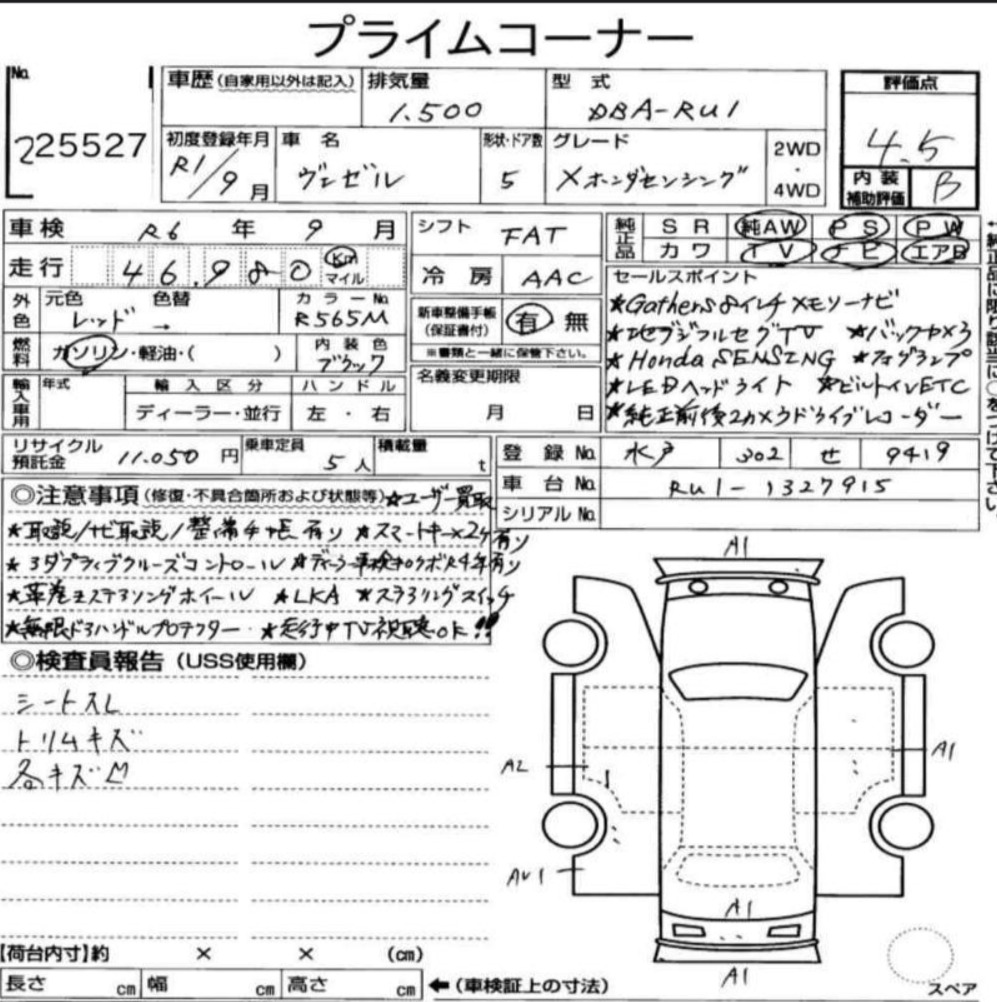 プライムコーナー
No.
225527
車歴(自家用以外は記入)
排気量
1.500
型 式
DBA-RU1
評価点
4.5
初度登録年月
R1/9月
車 名
ヴェゼル
形状・ドア数
5
グレード
Xホンダセンシング
2WD
・
4WD
内 装
補助評価
B
車検 R6 年 9 月
走行 46.980 Km
マイル
シフト FAT
冷 房 AAC
純正品
SR 純AW PS PW
カワ TV ナビ エアB
外色
元色 色替
レッド →
カラーNo.
R565M
燃料
ガソリン・軽油・( )
内 装 色
ブラック
新車整備手帳
(保証書付)
有 無
※書類と一緒に保管下さい。
セールスポイント
★Gathers 8インチメモリーナビ
★フルセグTV ★バックカメラ
★Honda SENSING ★フォグランプ
★LEDヘッドライト ★ビルトインETC
★純正前後2カメラドライブレコーダー
輸入車用
年式
輸 入 区 分
ディーラー・並行
ハ ン ド ル
左 ・ 右
名義変更期限
月 日
リサイクル
預託金
11.050 円
乗車定員
5人
積載量
t
登 録 No. 水戸 302 せ 9419
車 台 No. RU1-1327915
シリアル No.
◎注意事項(修復・不具合箇所および状態等)★ユーザー買取
★取説/ナビ取説/整備手帳有り ★スマートキー×2ケ有り
★アダプティブクルーズコントロール ★ディーラー車検キロクボR4年有り
★革巻きステアリングホイール ★LKA ★ステアリングスイッチ
★無限ドアハンドルプロテクター ★走行中TV視聴OK!!
◎検査員報告(USS使用欄)
シートスレ
トリムキズ
各キズ凹
A1
A2
A1
AU1
A1
A1
【荷台内寸】約 × × (cm)
長さ cm 幅 cm 高さ cm
←(車検証上の寸法)
スペア
←純正品に限り該当に○をつけて下さい。